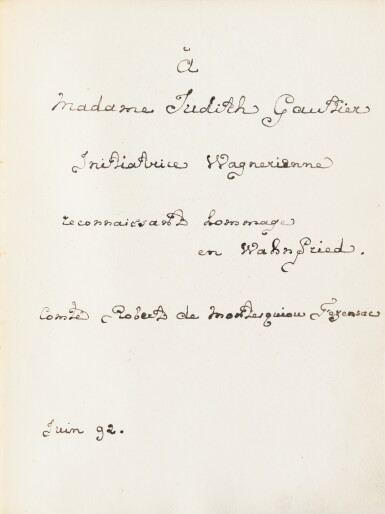 à
Madame Judith Gautier
Initiatrice Wagnerienne
reconnaissant hommage
en Wahnfried.
Comte Robert de Montesquiou Fezensac
Juin 92.